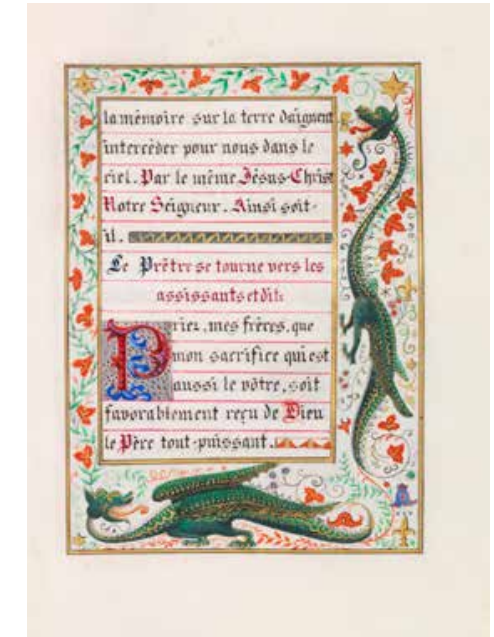 la mémoire sur la terre daignent
intercéder pour nous dans le
ciel. Par le même Jésus-Christ
Notre Seigneur. Ainsi soit-
il.
Le Prêtre se tourne vers les
assistants et dit:
Priez, mes frères, que
mon sacrifice qui est
aussi le vôtre, soit
favorablement reçu de Dieu
le Père tout-puissant.